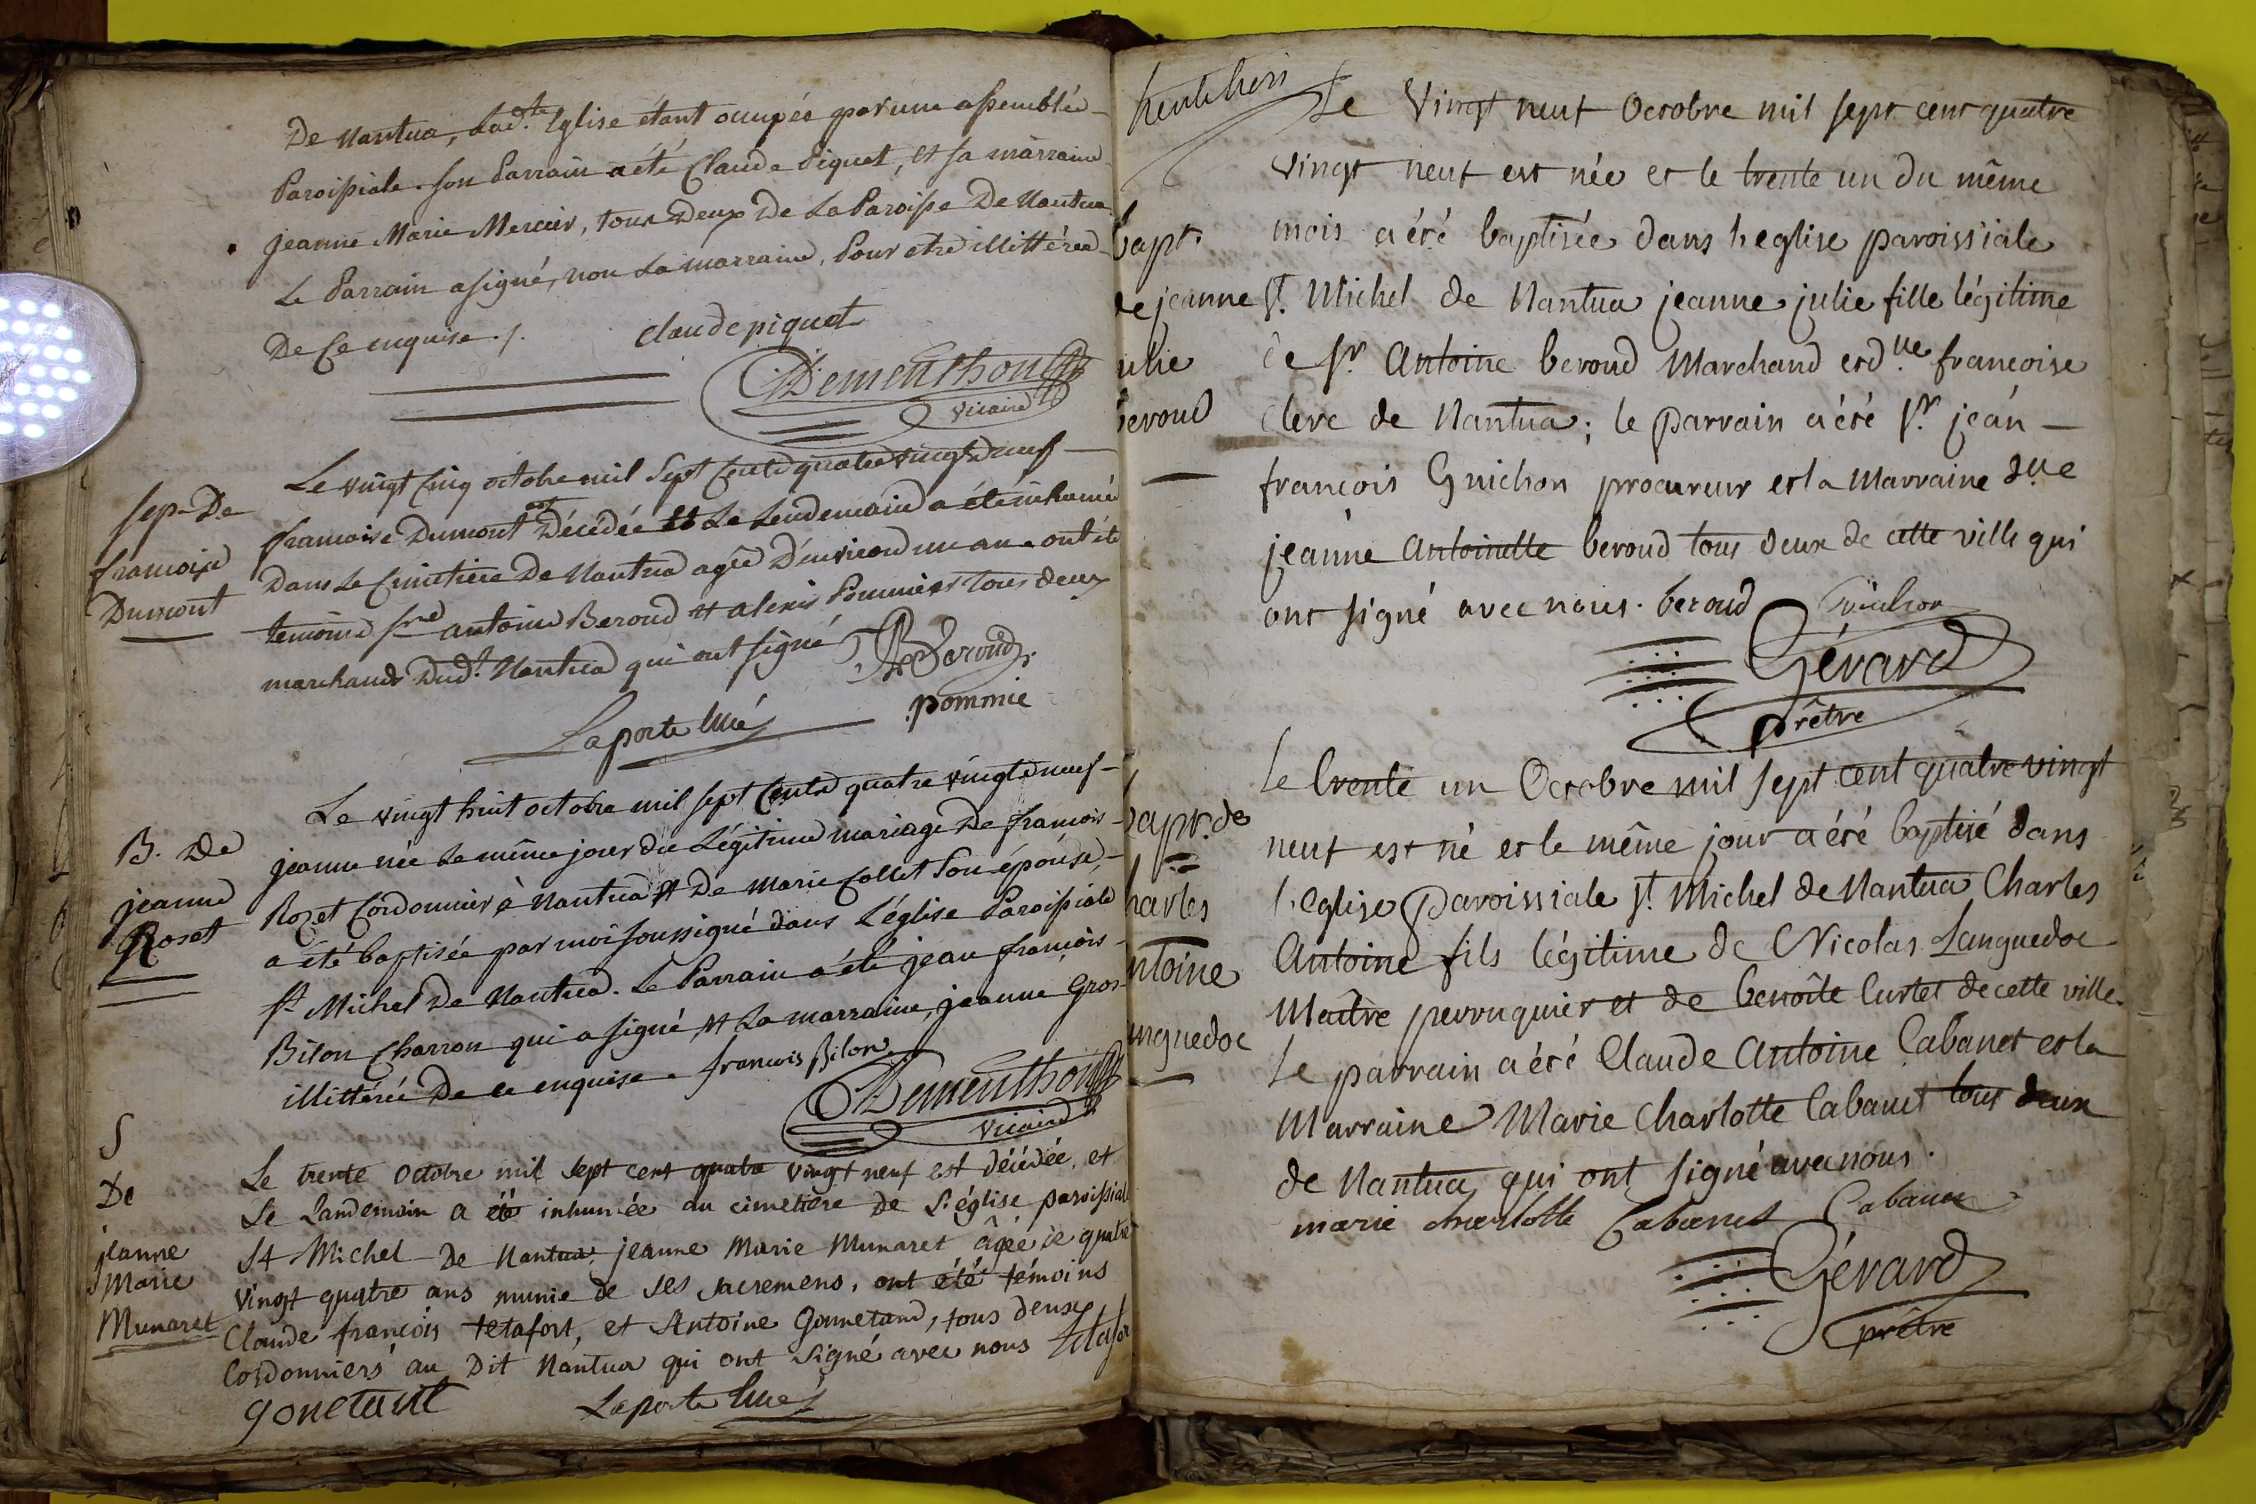 De Nantua, Lad.te Eglise étant occupée par une assemblée
Paroissiale. son Parrain a été Claude Piquet, et sa marraine
jeanne Marie Mercier, tous Deux De La Paroisse De Nantua
Le Parrain a signé, non La marraine, Pour etre illittérée
De Ce enquise ./.
claude piquet
Dementhon
vicaire
sep. De
francoise
Dumont
Le vingt Cinq octobre mil Sept Cents quatre vingts neuf
francoise Dumont est Décédée et Le Lendemain a été inhumée
Dans Le Cimetiere De Nantua agée D'environ un an. ont été
temoins srs antoine Beroud et alexis Pommier tous deux
marchands Dud.t Nantua qui ont signé
Beroud
pommie
Laporte Curé
B. De
jeanne
Roset
Le vingt huit octobre mil sept Cents quatre vingts neuf
jeanne née Le même jour du Légitime mariage De francois
Rozet Cordonnier à Nantua et De Marie Collet Son épouse,
a été baptisée par moi soussigné dans L'église Paroissiale
st Michel De Nantua. Le Parrain a été jean françois
Bilon Charron qui a signé et La marraine, jeanne Gros
illittérée De ce enquise. francois Bilon
Dementhon
vicaire
S
De
jeanne
Marie
Munaret
Le trente octobre mil sept cent quatre vingt neuf est décédée, et
Le Landemain a été inhumée au cimetière de L'église paroissiale
St Michel De Nantua, jeanne Marie Munaret âgée de quatre
vingt quatre ans munie de ses sacremens, ont été témoins
Claude françois tetafort, et Antoine Gonnetand, tous deux
Cordonniers au Dit Nantua qui ont signé avec nous tetafor
gonetant
Laporte Curé
bapt.
de jeanne
julie
beroud
Le Vingt neuf Octobre mil sept cent quatre
vingt neuf est née et le trente un du même
mois a été baptisée dans l'eglise paroissiale
St. Michel de Nantua jeanne julie fille légitime
de Sr Antoine beroud Marchand et d.lle francoise
Clerc de Nantua; le parrain a été Sr. jean
françois Guichon procureur et la Marraine d.lle
jeanne Antoinette beroud tous deux de cette ville qui
ont signé avec nous. beroud
Guichon
Gérard
prêtre
bapt. de
Charles
Antoine
Languedoc
Le trente un Octobre mil sept cent quatre vingt
neuf est né et le même jour a été baptisé dans
l'eglise Paroissiale St. Michel de Nantua Charles
Antoine fils légitime de Nicolas Languedoc
Maître perruquier et de benoîte Curtet de cette ville.
Le parrain a été Claude Antoine Cabanet et la
Marraine Marie Charlotte Cabanet tous deux
de Nantua qui ont signé avec nous.
marie charlotte Cabanet
Cabanet
Gérard
prêtre